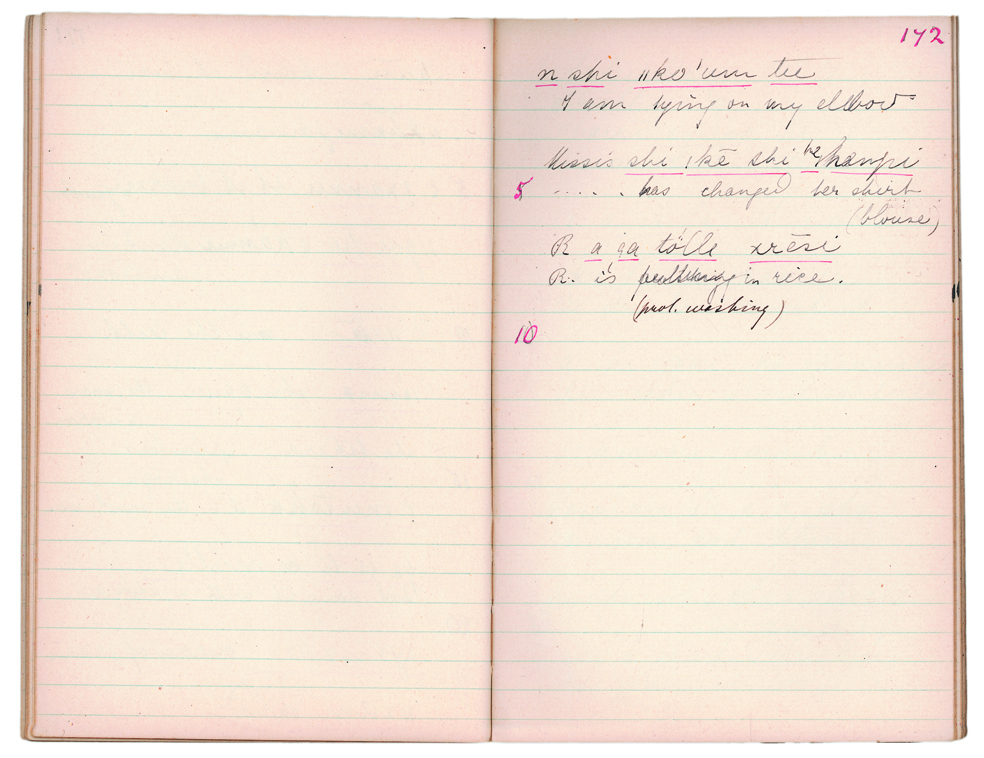 172
n shi ‖ko'um tee
I am lying on my elbow
Missis shi |kē shi ha hempi
5 ..... has changed her shirt
(blouse)
R a ga tolle xrēsi
R. is in rice.
(prob. washing)
10